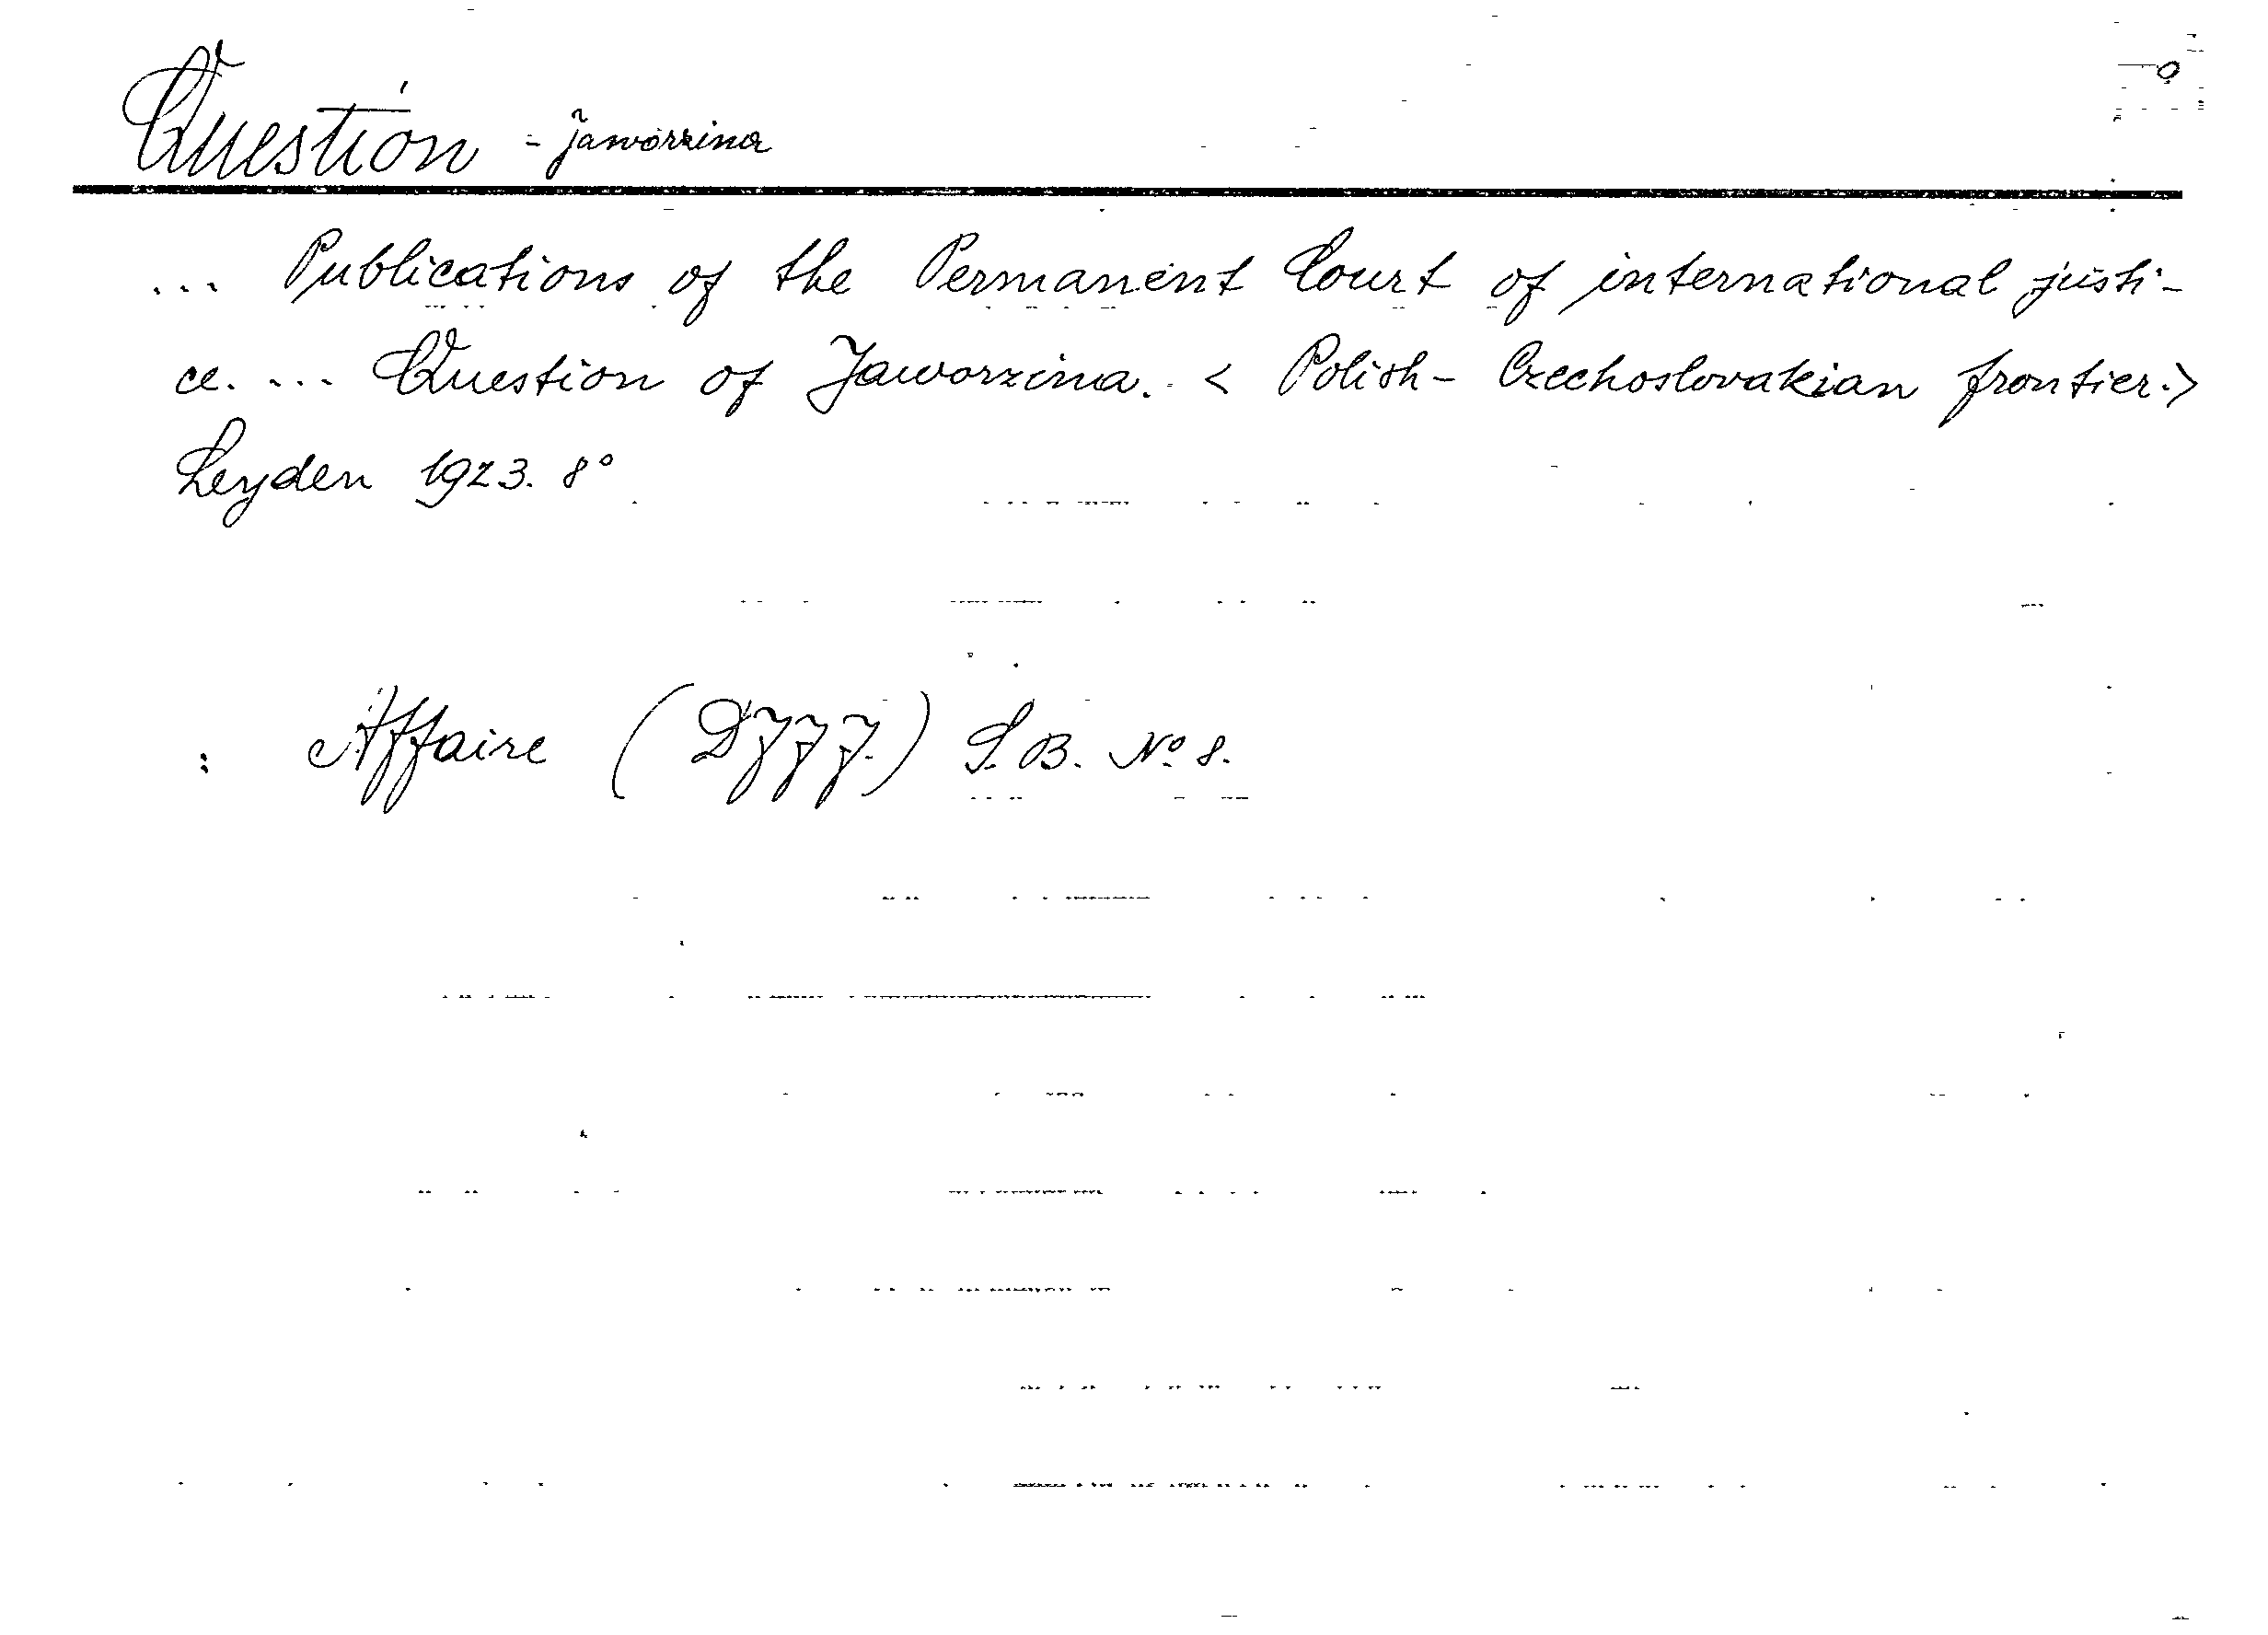 Question - Jaworzina
... Publications of the Permanent Court of international justi-
ce. ... Question of Jaworzina. < Polish- Czechoslovakian frontier.>
Leyden 1923. 8°
: Affaire (DJJJ.) S. B. No. 8.